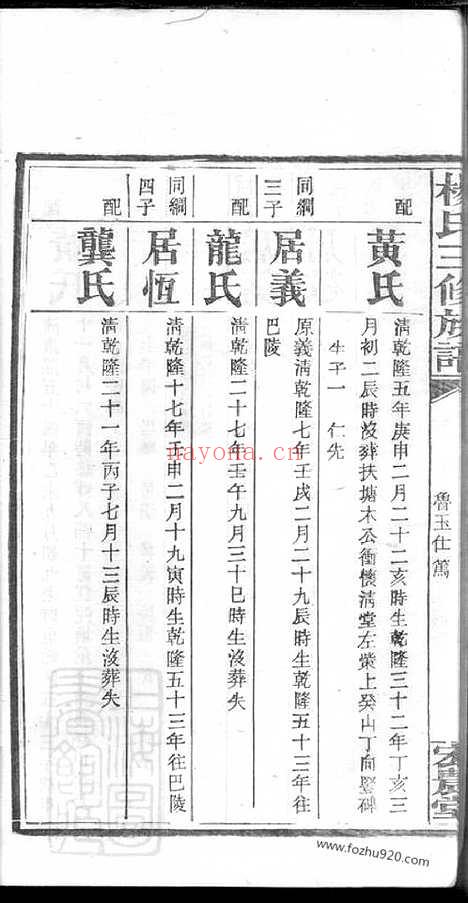 楊氏三修族譜
魯玉仕篤
配
黃氏
清乾隆五年庚申二月二十二亥時生乾隆三十二年丁亥三
月初二辰時沒葬扶塘木公衝懷清堂左塋上癸山丁向豎碑
生子一 仁先
同綱
三子
居義
原義清乾隆七年壬戌二月二十九辰時生乾隆五十三年往
巴陵
配
龍氏
清乾隆二十七年壬午九月三十巳時生沒葬失
同綱
四子
居恆
清乾隆十七年壬申二月十九寅時生乾隆五十三年往巴陵
配
龔氏
清乾隆二十一年丙子七月十三辰時生沒葬失
nayona.cn
www.fozhu920.com